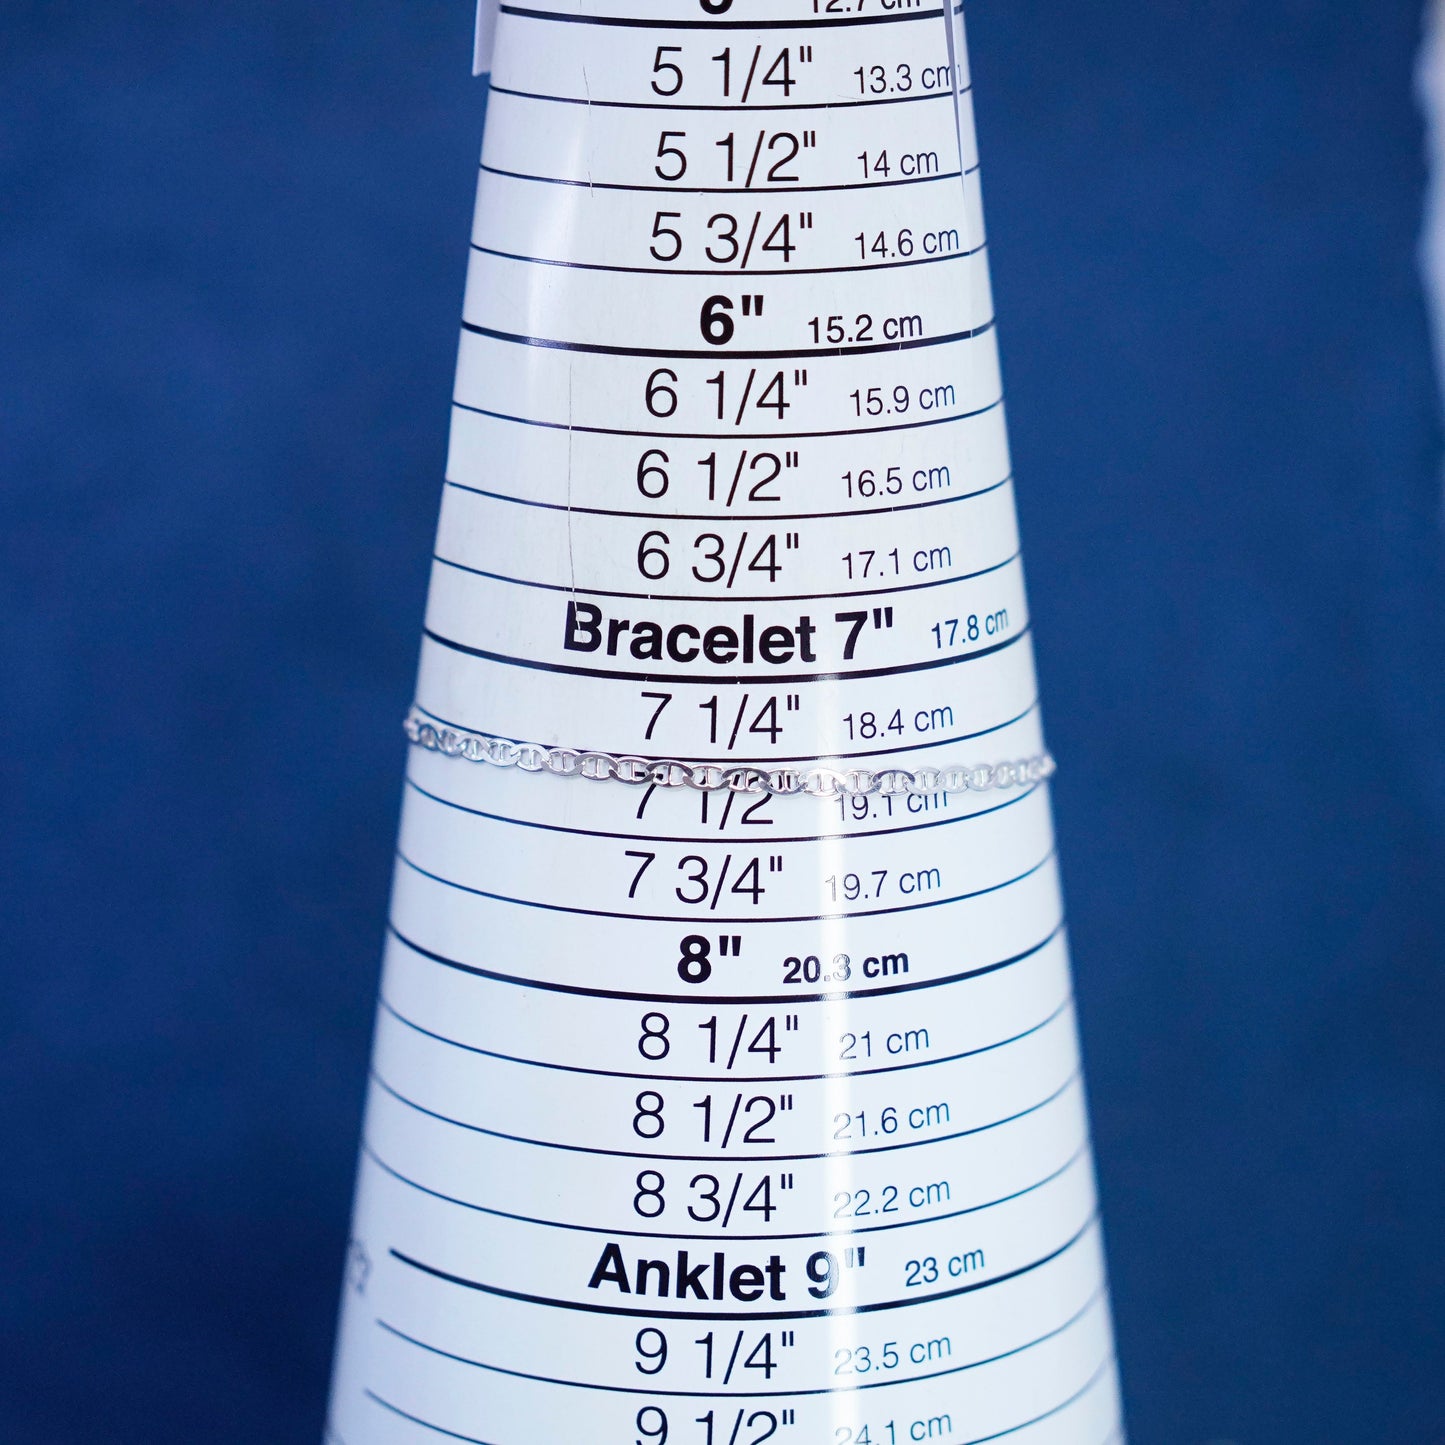 12.7 cm
5 1/4" 13.3 cm
5 1/2" 14 cm
5 3/4" 14.6 cm
6" 15.2 cm
6 1/4" 15.9 cm
6 1/2" 16.5 cm
6 3/4" 17.1 cm
Bracelet 7" 17.8 cm
7 1/4" 18.4 cm
7 1/2 19.1 cm
7 3/4" 19.7 cm
8" 20.3 cm
8 1/4" 21 cm
8 1/2" 21.6 cm
8 3/4" 22.2 cm
Anklet 9" 23 cm
9 1/4" 23.5 cm
9 1/2" 24.1 cm